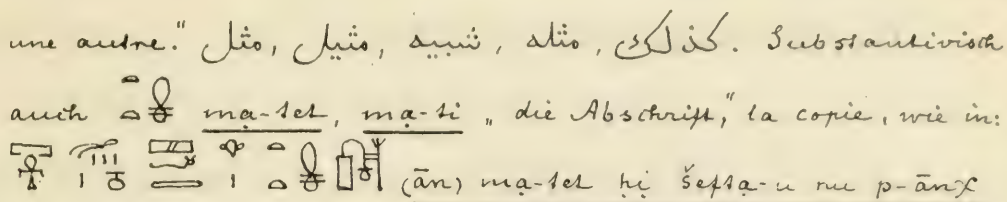 une autre." مثل, مثيل, شبيه, مثله, كذلك. Substantivisch
auch ma-tet, ma-ti „die Abschrift," la copie, wie in:
(ān) ma-tet ḥi šefta-u nu p-ānχ